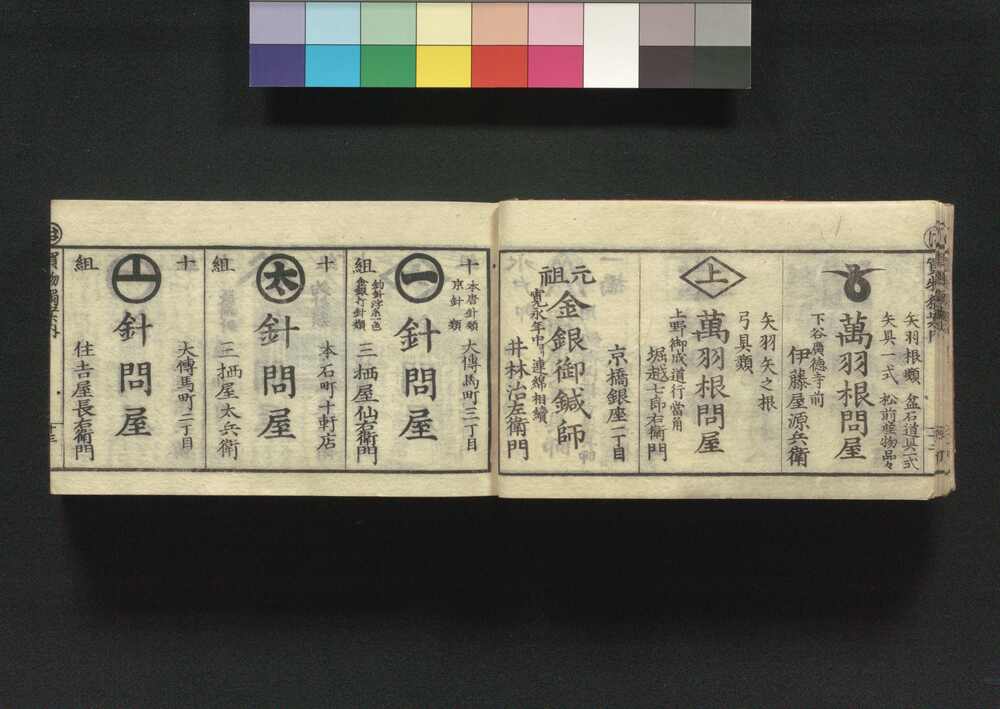 矢羽根類 盆石道具一式
矢具一式 松前産物品々
萬羽根問屋
下谷廣徳寺前
伊藤屋源兵衛
上
矢羽矢之根
弓具類
萬羽根問屋
上野御成道行當角
堀越七郎右衛門
京橋銀座一丁目
元祖
金銀御鍼師
寛永年中ゟ連綿相續
井林治左衛門
十組
一
本唐針類
京針類
大傳馬町三丁目
針問屋
三栖屋仙右衛門
十組
太
本石町十軒店
針問屋
三栖屋太兵衛
十組
大傳馬町二丁目
針問屋
住吉屋長右衛門
買物獨案内
十三